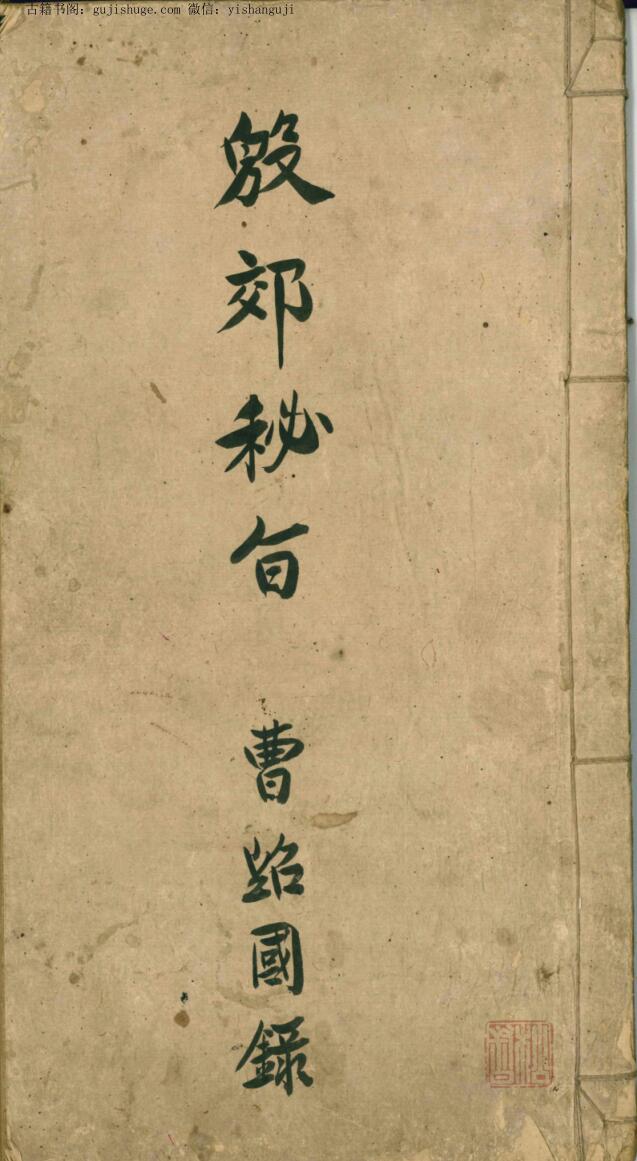 古籍书阁：gujishuge.com 微信：yishanguji
殷郊秘旨 曹國錄